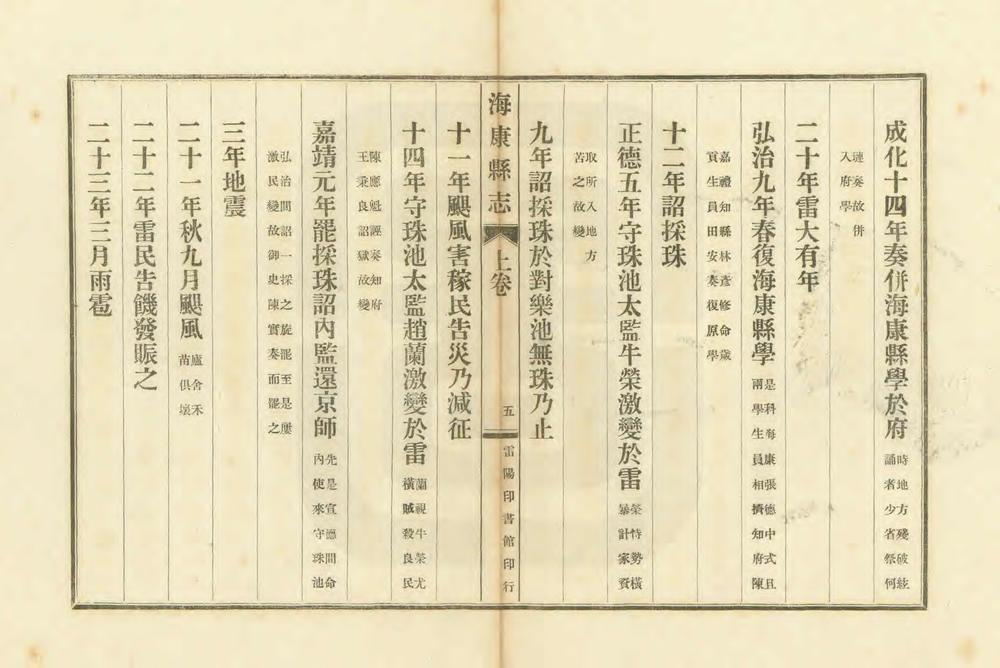 成化十四年奏併海康縣學於府 時地方殘破絃誦者少省祭何
璉奏故併入府學
二十年雷大有年
弘治九年春復海康縣學 是科海康張德中式且兩學生員相擠知府陳
嘉禮知縣林彥修命歲貢生員田安奏復原學
十二年詔採珠
正德五年守珠池太監牛榮激變於雷 榮恃勢橫暴計家資
取所入地方苦之故變
九年詔採珠於對樂池無珠乃止
海康縣志 上卷 五 雷陽印書館印行
十一年颶風害稼民告災乃減征
十四年守珠池太監趙蘭激變於雷 蘭視牛榮尤橫賊殺良民
陳應魁誣奏知府王秉良詔獄故變
嘉靖元年罷採珠詔內監還京師 先是宣德間命內使來守珠池
弘治間詔一採之旋罷至是屢激民變故御史陳實奏而罷之
三年地震
二十一年秋九月颶風 廬舍禾苗俱壞
二十二年雷民告饑發賑之
二十三年三月雨雹